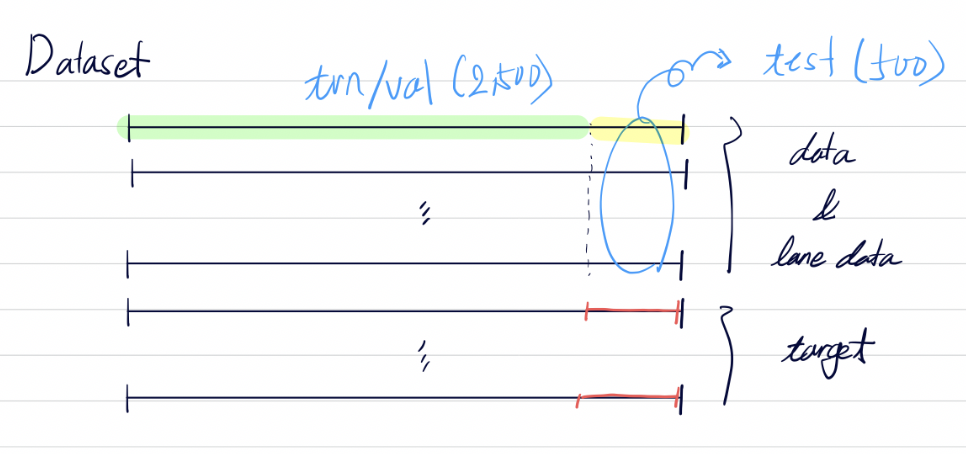 Dataset
trn/val (2500)
test (500)
data
&
lane data
target